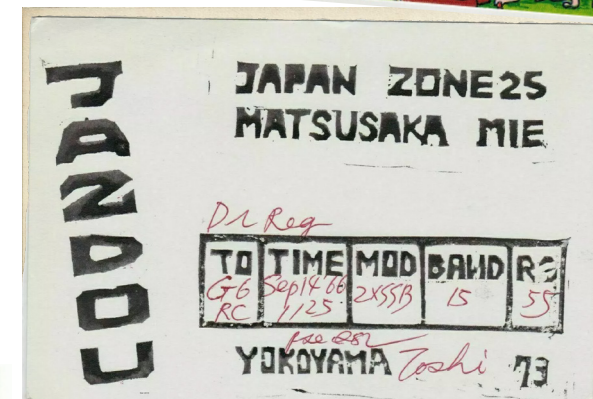 JA2DOU
JAPAN ZONE 25
MATSUSAKA MIE
Dr Reg
TO TIME MOD BAND RS
G6 Sep 14 66 2XSSB 15 55
RC 1125
pse QSL
YOKOYAMA Toshi 73